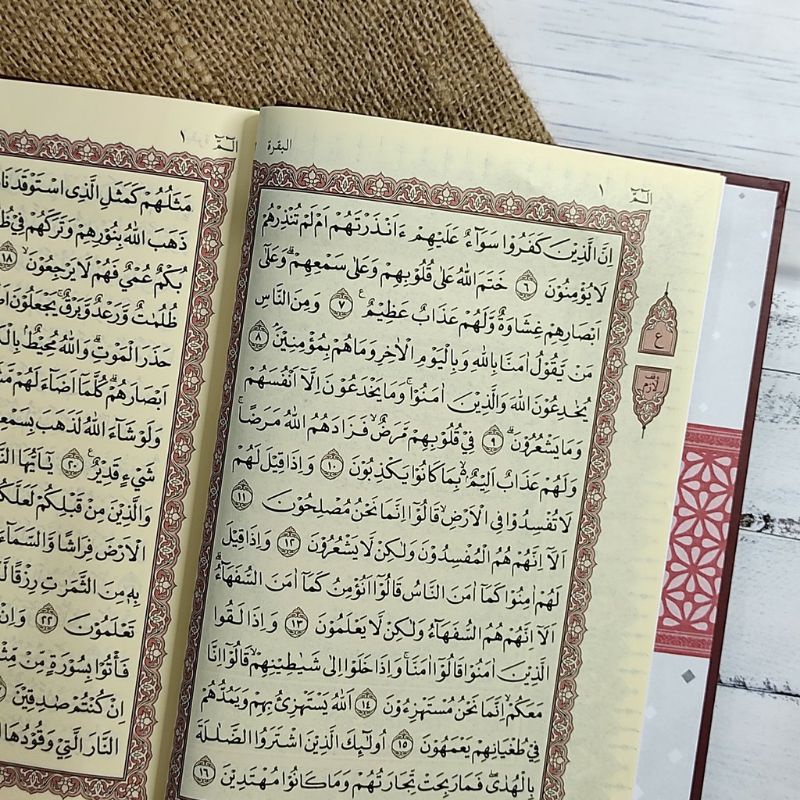 البقرة ٢
الٓمّٓ ١
اِنَّ الَّذِيْنَ كَفَرُوْا سَوَآءٌ عَلَيْهِمْ ءَاَنْذَرْتَهُمْ اَمْ لَمْ تُنْذِرْهُمْ
لَا يُؤْمِنُوْنَ ﴿٦﴾ خَتَمَ اللّٰهُ عَلٰى قُلُوْبِهِمْ وَعَلٰى سَمْعِهِمْ ۗ وَعَلٰٓى
اَبْصَارِهِمْ غِشَاوَةٌ وَّلَهُمْ عَذَابٌ عَظِيْمٌ ﴿٧﴾ وَمِنَ النَّاسِ
مَنْ يَّقُوْلُ اٰمَنَّا بِاللّٰهِ وَبِالْيَوْمِ الْاٰخِرِ وَمَا هُمْ بِمُؤْمِنِيْنَ ۘ ﴿٨﴾
يُخٰدِعُوْنَ اللّٰهَ وَالَّذِيْنَ اٰمَنُوْا ۚ وَمَا يَخْدَعُوْنَ اِلَّآ اَنْفُسَهُمْ
وَمَا يَشْعُرُوْنَ ۗ ﴿٩﴾ فِيْ قُلُوْبِهِمْ مَّرَضٌ ۙ فَزَادَهُمُ اللّٰهُ مَرَضًا ۚ
وَلَهُمْ عَذَابٌ اَلِيْمٌ ۢ ۙ بِمَا كَانُوْا يَكْذِبُوْنَ ﴿١٠﴾ وَاِذَا قِيْلَ لَهُمْ
لَا تُفْسِدُوْا فِى الْاَرْضِ ۙ قَالُوْٓا اِنَّمَا نَحْنُ مُصْلِحُوْنَ ﴿١١﴾
اَلَآ اِنَّهُمْ هُمُ الْمُفْسِدُوْنَ وَلٰكِنْ لَّا يَشْعُرُوْنَ ﴿١٢﴾ وَاِذَا قِيْلَ
لَهُمْ اٰمِنُوْا كَمَآ اٰمَنَ النَّاسُ قَالُوْٓا اَنُؤْمِنُ كَمَآ اٰمَنَ السُّفَهَاۤءُ ۗ
اَلَآ اِنَّهُمْ هُمُ السُّفَهَاۤءُ وَلٰكِنْ لَّا يَعْلَمُوْنَ ﴿١٣﴾ وَاِذَا لَقُوا
الَّذِيْنَ اٰمَنُوْا قَالُوْٓا اٰمَنَّا ۚ وَاِذَا خَلَوْا اِلٰى شَيٰطِيْنِهِمْ ۙ قَالُوْٓا اِنَّا
مَعَكُمْ ۙ اِنَّمَا نَحْنُ مُسْتَهْزِءُوْنَ ﴿١٤﴾ اَللّٰهُ يَسْتَهْزِئُ بِهِمْ وَيَمُدُّهُمْ
فِيْ طُغْيَانِهِمْ يَعْمَهُوْنَ ﴿١٥﴾ اُولٰۤىِٕكَ الَّذِيْنَ اشْتَرَوُا الضَّلٰلَةَ
بِالْهُدٰى ۖ فَمَا رَبِحَتْ تِّجَارَتُهُمْ وَمَا كَانُوْا مُهْتَدِيْنَ ﴿١٦﴾
ع
وقف لازم
الٓمّٓ ١
مَثَلُهُمْ كَمَثَلِ الَّذِى اسْتَوْقَدَ
ذَهَبَ اللّٰهُ بِنُوْرِهِمْ وَتَرَكَهُمْ فِيْ
بُكْمٌ عُمْيٌ فَهُمْ لَا يَرْجِعُوْنَ ۙ ﴿١٨﴾
ظُلُمٰتٌ وَّرَعْدٌ وَّبَرْقٌ ۚ يَجْعَلُوْنَ
حَذَرَ الْمَوْتِ ۗ وَاللّٰهُ مُحِيْطٌ ۢ
اَبْصَارَهُمْ ۗ كُلَّمَآ اَضَاۤءَ لَهُمْ
وَلَوْ شَاۤءَ اللّٰهُ لَذَهَبَ بِسَمْعِهِ
شَيْءٍ قَدِيْرٌ ﴿٢٠﴾ يٰٓاَيُّهَا
وَالَّذِيْنَ مِنْ قَبْلِكُمْ لَعَلَّكُ
الْاَرْضَ فِرَاشًا وَّالسَّمَاۤءَ
بِهٖ مِنَ الثَّمَرٰتِ رِزْقًا
تَعْلَمُوْنَ ﴿٢٢﴾ وَاِنْ
فَأْتُوْا بِسُوْرَةٍ مِّنْ
اِنْ كُنْتُمْ صٰدِقِيْنَ
النَّارَ الَّتِيْ وَقُوْدُهَا